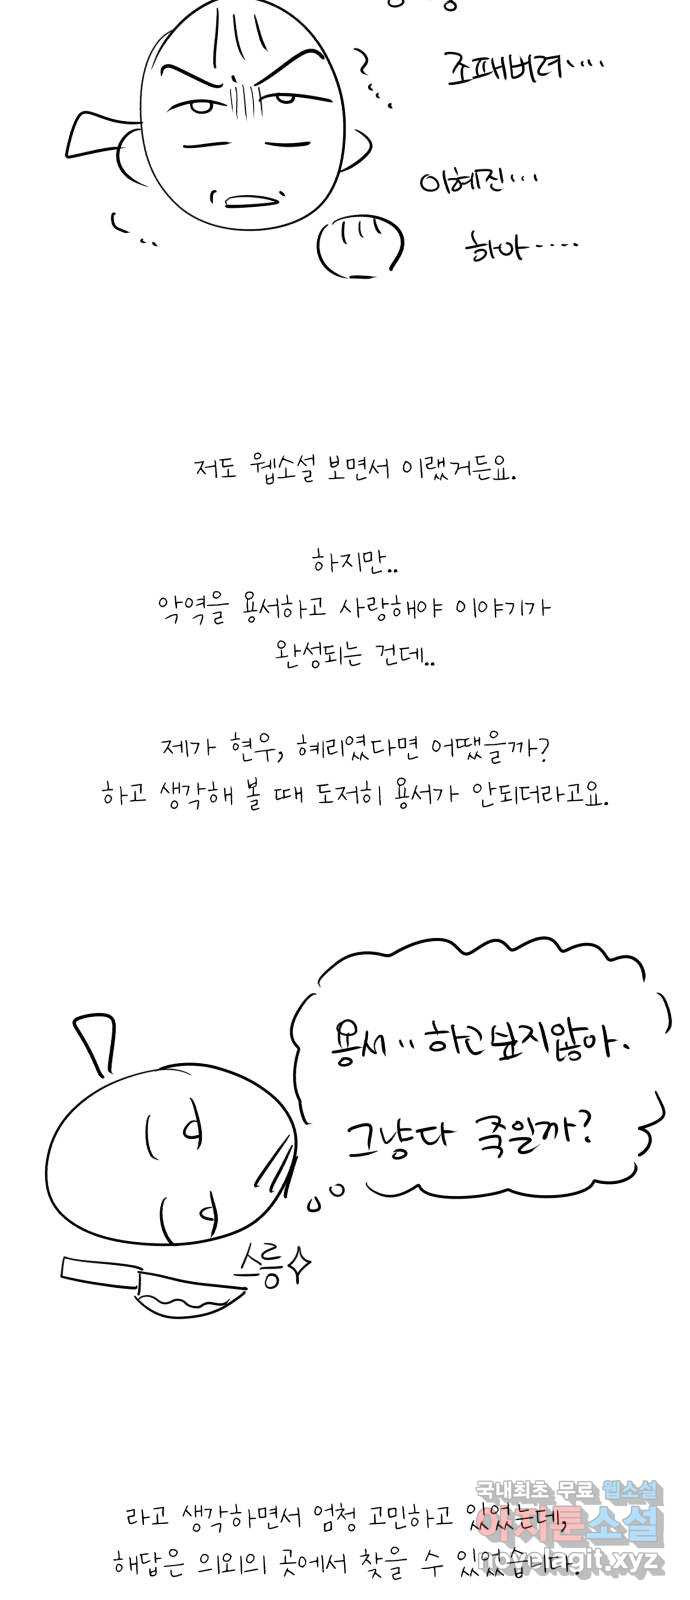 조패버려....
이혜진...
하아....
저도 웹소설 보면서 이랬거든요.
하지만..
악역을 용서하고 사랑해야 이야기가
완성되는 건데..
제가 현우, 혜리였다면 어땠을까?
하고 생각해 볼 때 도저히 용서가 안되더라고요.
용서..하고싶지않아.
그냥다 죽일까?
스릉
라고 생각하면서 엄청 고민하고 있었는데,
해답은 의외의 곳에서 찾을 수 있었습니다.
국내최초 무료 웹소설
아지툰소설
novelagit.xyz